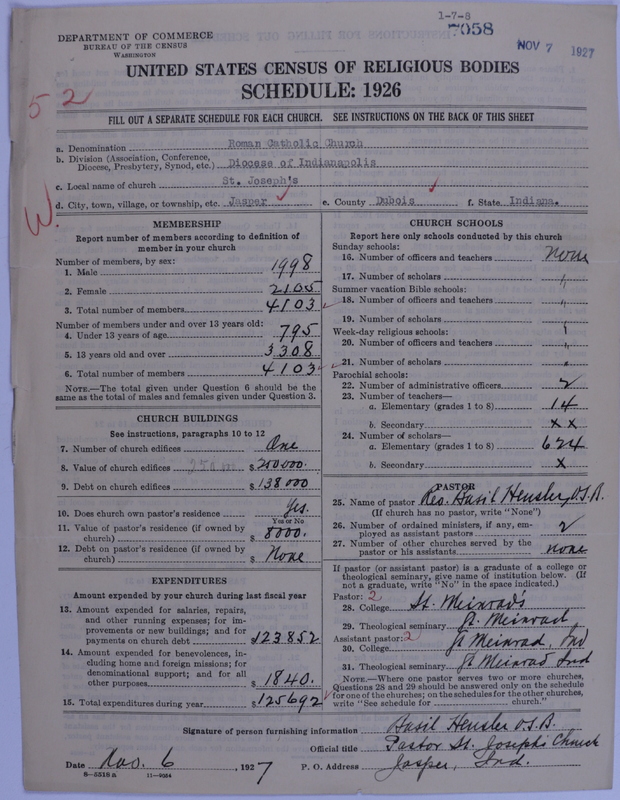 1-7-8
7058
NOV 7 1927
DEPARTMENT OF COMMERCE
BUREAU OF THE CENSUS
WASHINGTON
UNITED STATES CENSUS OF RELIGIOUS BODIES
SCHEDULE: 1926
52
FILL OUT A SEPARATE SCHEDULE FOR EACH CHURCH. SEE INSTRUCTIONS ON THE BACK OF THIS SHEET
a. Denomination Roman Catholic Church
b. Division (Association, Conference, Diocese, Presbytery, Synod, etc.) Diocese of Indianapolis
c. Local name of church St. Joseph's
d. City, town, village, or township, etc. Jasper e. County Dubois f. State Indiana.
W.
MEMBERSHIP
Report number of members according to definition of
member in your church
Number of members, by sex:
1. Male 1998
2. Female 2105
3. Total number of members 4103
Number of members under and over 13 years old:
4. Under 13 years of age 795
5. 13 years old and over 3308
6. Total number of members 4103
NOTE.—The total given under Question 6 should be
same as the total of males and females given under Question 3.
CHURCH BUILDINGS
See instructions, paragraphs 10 to 12
7. Number of church edifices One
8. Value of church edifices $200000.
9. Debt on church edifices $138000
10. Does church own pastor's residence? Yes.
Yes or No
11. Value of pastor's residence (if owned by
church) $ 8000.
12. Debt on pastor's residence (if owned by
church) $ None
EXPENDITURES
Amount expended by your church during last fiscal year
13. Amount expended for salaries, repairs,
and other running expenses; for im-
provements or new buildings; and for
payments on church debt $123852
14. Amount expended for benevolences, in-
cluding home and foreign missions; for
denominational support; and for all
other purposes $ 1840.
15. Total expenditures during year $125692
CHURCH SCHOOLS
Report here only schools conducted by this church
Sunday schools:
16. Number of officers and teachers None
17. Number of scholars "
Summer vacation Bible schools:
18. Number of officers and teachers "
19. Number of scholars "
Week-day religious schools:
20. Number of officers and teachers "
21. Number of scholars "
Parochial schools:
22. Number of administrative officers 2
23. Number of teachers—
a. Elementary (grades 1 to 8) 14
b. Secondary x x
24. Number of scholars—
a. Elementary (grades 1 to 8) 624
b. Secondary x
PASTOR
25. Name of pastor Rev. Basil Heusler, O.S.B.
(If church has no pastor, write "None")
26. Number of ordained ministers, if any, em-
ployed as assistant pastors 2
27. Number of other churches served by the
pastor or his assistants none
If pastor (or assistant pastor) is a graduate of a college or
theological seminary, give name of institution below. (If
not a graduate, write "No" in the space indicated.)
Pastor: 2
28. College St. Meinrad's
29. Theological seminary St. Meinrad
Assistant pastor: 2
30. College St Meinrad, Ind
31. Theological seminary St Meinrad Ind
NOTE.—Where one pastor serves two or more churches,
Questions 28 and 29 should be answered only on the schedule
for one of the churches; on the schedules for the other churches,
write "See schedule for church."
Signature of person furnishing information Basil Heusler O.S.B.
Official title Pastor St. Joseph's Church
Date Nov. 6, 1927 P. O. Address Jasper, Ind.
8—5518 a 11—9024